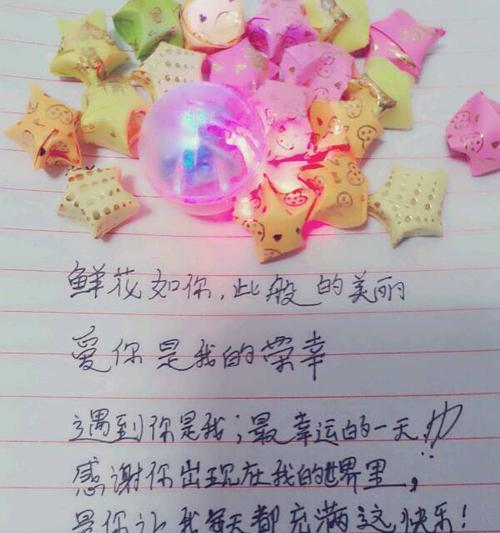 鲜花如你,此般的美丽
爱你是我的荣幸
遇到你是我;最幸运的一天
感谢你出现在我的世界里,
是你让我每天都充满这快乐!